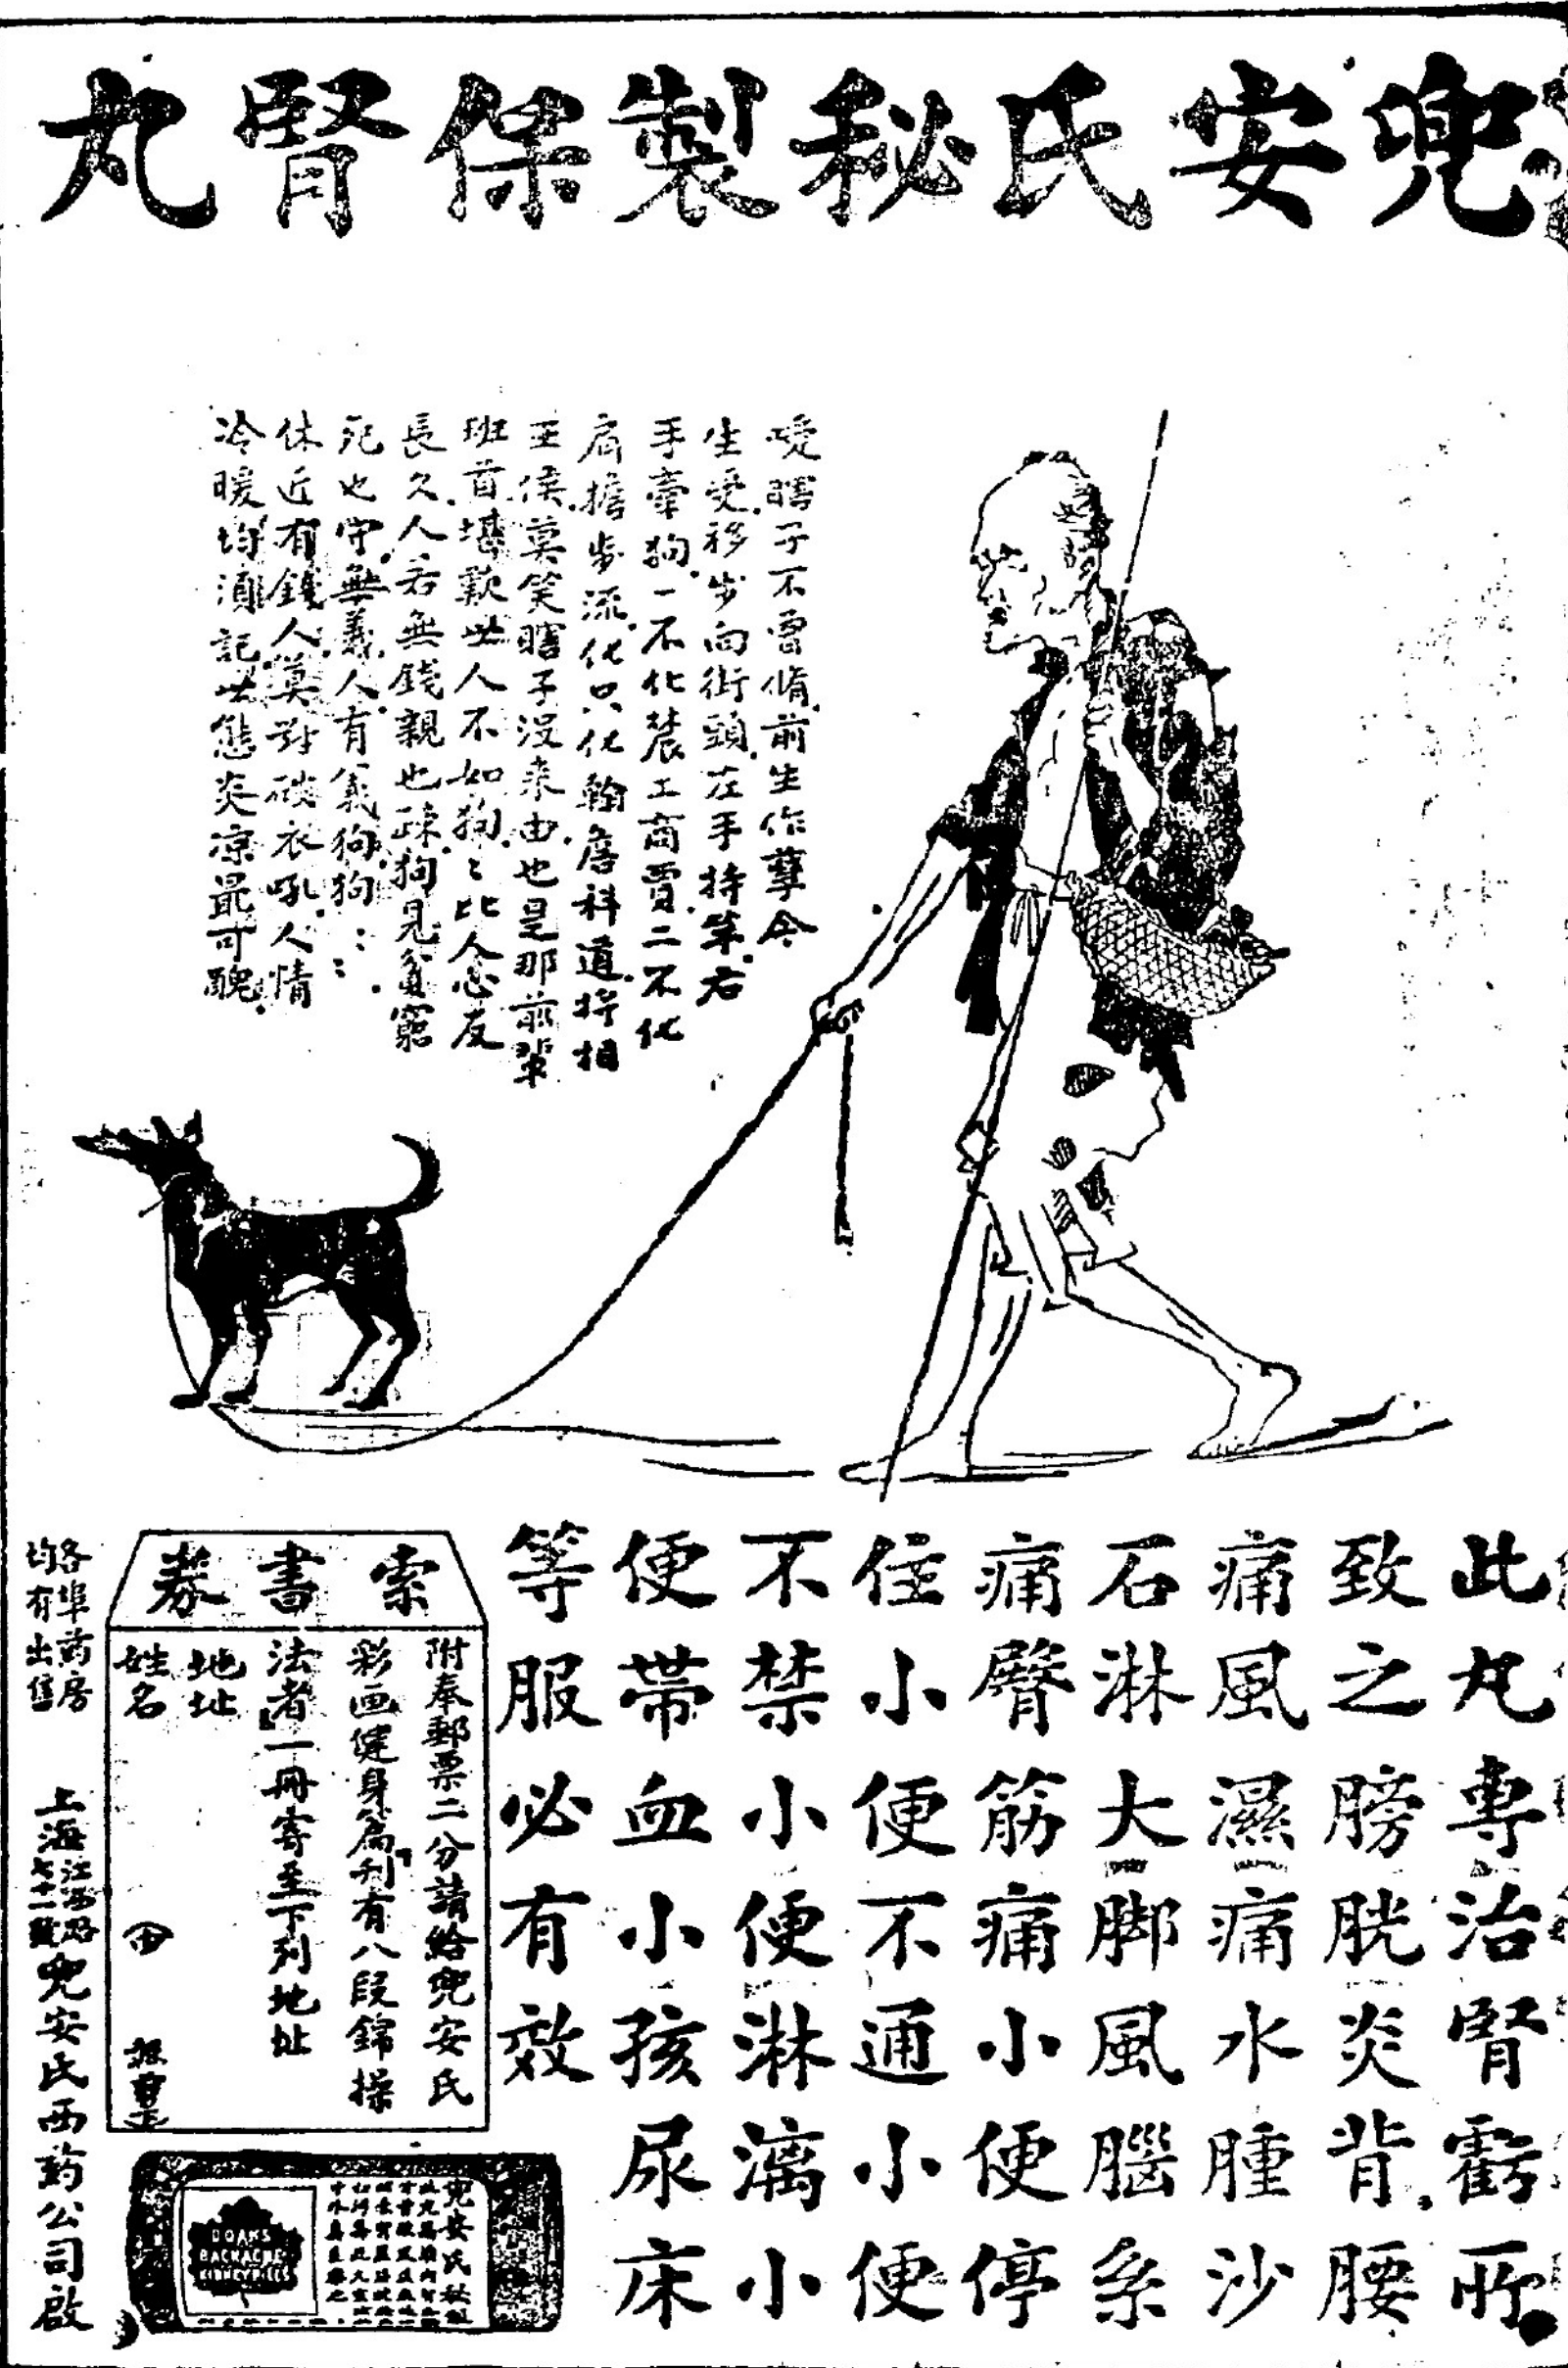 兜安氏秘製保腎丸
嗳瞎子不曾脩前生作孽今
生受移步向街頭左手持竿右
手牽狗一不化農工商賈二不化
肩擔步流化只化翰詹科道将相
王侯莫笑瞎子沒来由也是那前輩
班首堪歎世人不如狗狗比人心友
長久人若無錢親也疎狗見貧窮
死也守無義人有義狗狗
休近有錢人莫對破衣吼人情
冷暖均須記世態炎凉最可醜
此丸專治腎虧所
致之膀胱炎背腰
痛風濕痛水腫沙
石淋大脚風腦系
痛臀筋痛小便停
住小便不通小便
不禁小便淋漓小
便帶血小孩尿床
等服必有效
索書券
附奉郵票二分請給兜安氏
彩画健身篇刊有八段錦操
法者一冊寄至下列地址
地址
姓名
各埠葯房
均有出售
上海江西路
七十一號兜安氏西葯公司啟
DOANS
BACKACHE
KIDNEY PILLS